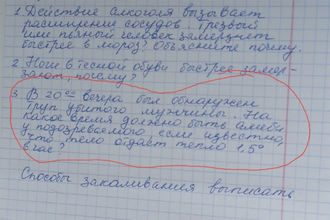 1. Действие алкоголя вызывает
расширение сосудов. Трезвый
или пьяный человек замерзнет
быстрее в мороз? Объясните почему.
2. Ноги в тесной обуви быстрее замер-
зают, почему?
3. В 20 00 вечера был обнаружен
труп убитого мужчины. На
какое время должно быть алиби
у подозреваемого, если известно,
что тело отдает тепло 1,5°
в час?
Способы закаливания выписать